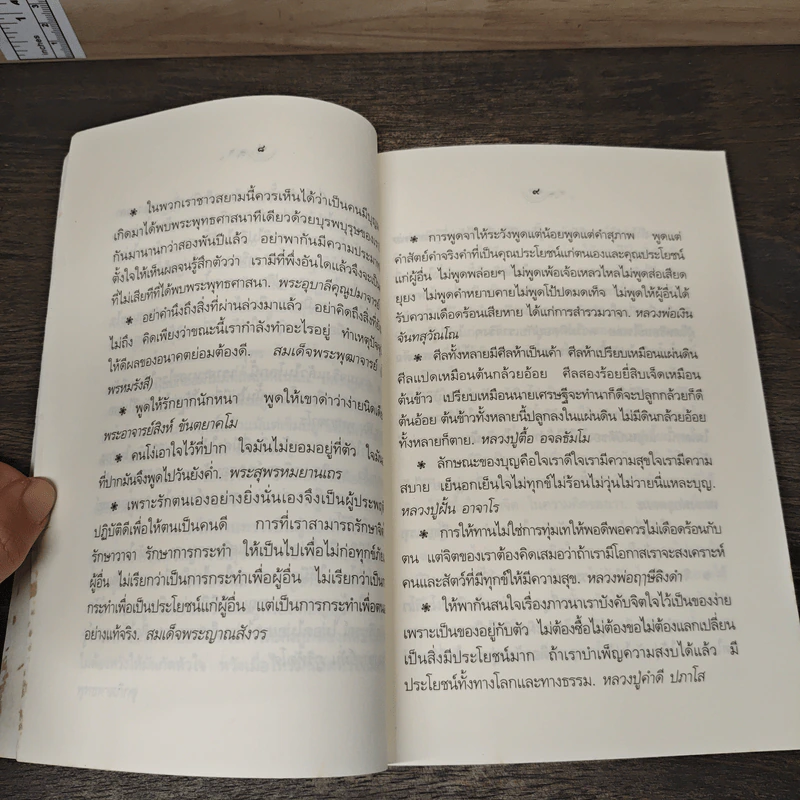 inches
๘
* ในพวกเราชาวสยามนี้ควรเห็นได้ว่าเป็นคนมีบุญ
เกิดมาได้พบพระพุทธศาสนาทีเดียวด้วยบุรพบุรุษของเรา
กันมานานกว่าสองพันปีแล้ว อย่าพากันมีความประมาท
ตั้งใจให้เห็นผลจนรู้สึกตัวว่า เรามีที่พึ่งอันใดแล้วจึงจะเป็น
ที่ไม่เสียทีที่ได้พบพระพุทธศาสนา. พระอุบาลีคุณูปมาจารย์
* อย่าคำนึงถึงสิ่งที่ผ่านล่วงมาแล้ว อย่าคิดถึงสิ่งที่ยัง
ไม่ถึง คิดเพียงว่าขณะนี้เรากำลังทำอะไรอยู่ ทำเหตุปัจจุ
ให้ดีผลของอนาคตย่อมต้องดี. สมเด็จพระพุฒาจารย์ (
พรหมรังสี)
* พูดให้รักยากนักหนา พูดให้เขาด่าว่าง่ายนิดเดีย
พระอาจารย์สิงห์ ขันตยาคโม
* คนโง่เอาใจไว้ที่ปาก ใจมันไม่ยอมอยู่ที่ตัว ใจมัน
ที่ปากมันจึงพูดไปวันยังค่ำ. พระสุพรหมยานเถร
* เพราะรักตนเองอย่างยิ่งนั่นเองจึงเป็นผู้ประพฤ
ปฏิบัติดีเพื่อให้ตนเป็นคนดี การที่เราสามารถรักษาจิต
รักษาวาจา รักษาการกระทำ ให้เป็นไปเพื่อไม่ก่อทุกข์ภัย
ผู้อื่น ไม่เรียกว่าเป็นการกระทำเพื่อผู้อื่น ไม่เรียกว่าเป็น
กระทำเพื่อเป็นประโยชน์แก่ผู้อื่น แต่เป็นการกระทำเพื่อตน
อย่างแท้จริง. สมเด็จพระญาณสังวร
๙
* การพูดจาให้ระวังพูดแต่น้อยพูดแต่คำสุภาพ พูดแต่
คำสัตย์คำจริงคำที่เป็นคุณประโยชน์แก่ตนเองและคุณประโยชน์
แก่ผู้อื่น ไม่พูดพล่อยๆ ไม่พูดเพ้อเจ้อเหลวไหลไม่พูดส่อเสียด
ยุยง ไม่พูดคำหยาบคายไม่พูดโป้ปดมดเท็จ ไม่พูดให้ผู้อื่นได้
รับความเดือดร้อนเสียหาย ได้แก่การสำรวมวาจา. หลวงพ่อเงิน
จันทสุวัณโณ
* ศีลทั้งหลายมีศีลห้าเป็นเค้า ศีลห้าเปรียบเหมือนแผ่นดิน
ศีลแปดเหมือนต้นกล้วยอ้อย ศีลสองร้อยยี่สิบเจ็ดเหมือน
ต้นข้าว เปรียบเหมือนนายเศรษฐีจะทำนาก็ดีจะปลูกกล้วยก็ดี
ต้นอ้อย ต้นข้าวทั้งหลายนี้ปลูกลงในแผ่นดิน ไม่มีดินกล้วยอ้อย
ทั้งหลายก็ตาย. หลวงปู่ตื้อ อจลธัมโม
* ลักษณะของบุญคือใจเราดีใจเรามีความสุขใจเรามีความ
สบาย เย็นอกเย็นใจไม่ทุกข์ไม่ร้อนไม่วุ่นไม่วายนี่แหละบุญ.
หลวงปู่ฝั้น อาจาโร
* การให้ทานไม่ใช่การทุ่มเทให้พอดีพอควรไม่เดือดร้อนกับ
ตน แต่จิตของเราต้องคิดเสมอว่าถ้าเรามีโอกาสเราจะสงเคราะห์
คนและสัตว์ที่มีทุกข์ให้มีความสุข. หลวงพ่อฤๅษีลิงดำ
* ให้พากันสนใจเรื่องภาวนาเราบังคับจิตใจไว้เป็นของง่าย
เพราะเป็นของอยู่กับตัว ไม่ต้องซื้อไม่ต้องขอไม่ต้องแลกเปลี่ยน
เป็นสิ่งมีประโยชน์มาก ถ้าเราบำเพ็ญความสงบได้แล้ว มี
ประโยชน์ทั้งทางโลกและทางธรรม. หลวงปู่คำดี ปภาโส